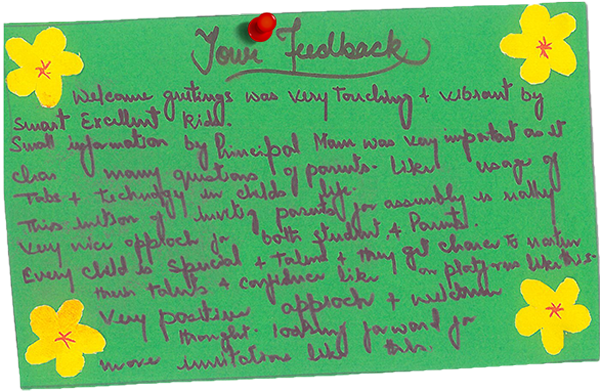 Your Feedback
Welcome greetings was very touching + vibrant by
Smart Excellent kids.
Small information by Principal Mam was very important as it
clear many questions of parents. Like usage of
Tabs + technology in childs life.
This of inviting parents for assembly is really
very nice approch for both student + Parents.
Every child is special + talent + they get chance to
their talents + confidence like on platforms like this.
Very positive approch + welcome
thought. looking forward for
more invitations like this.